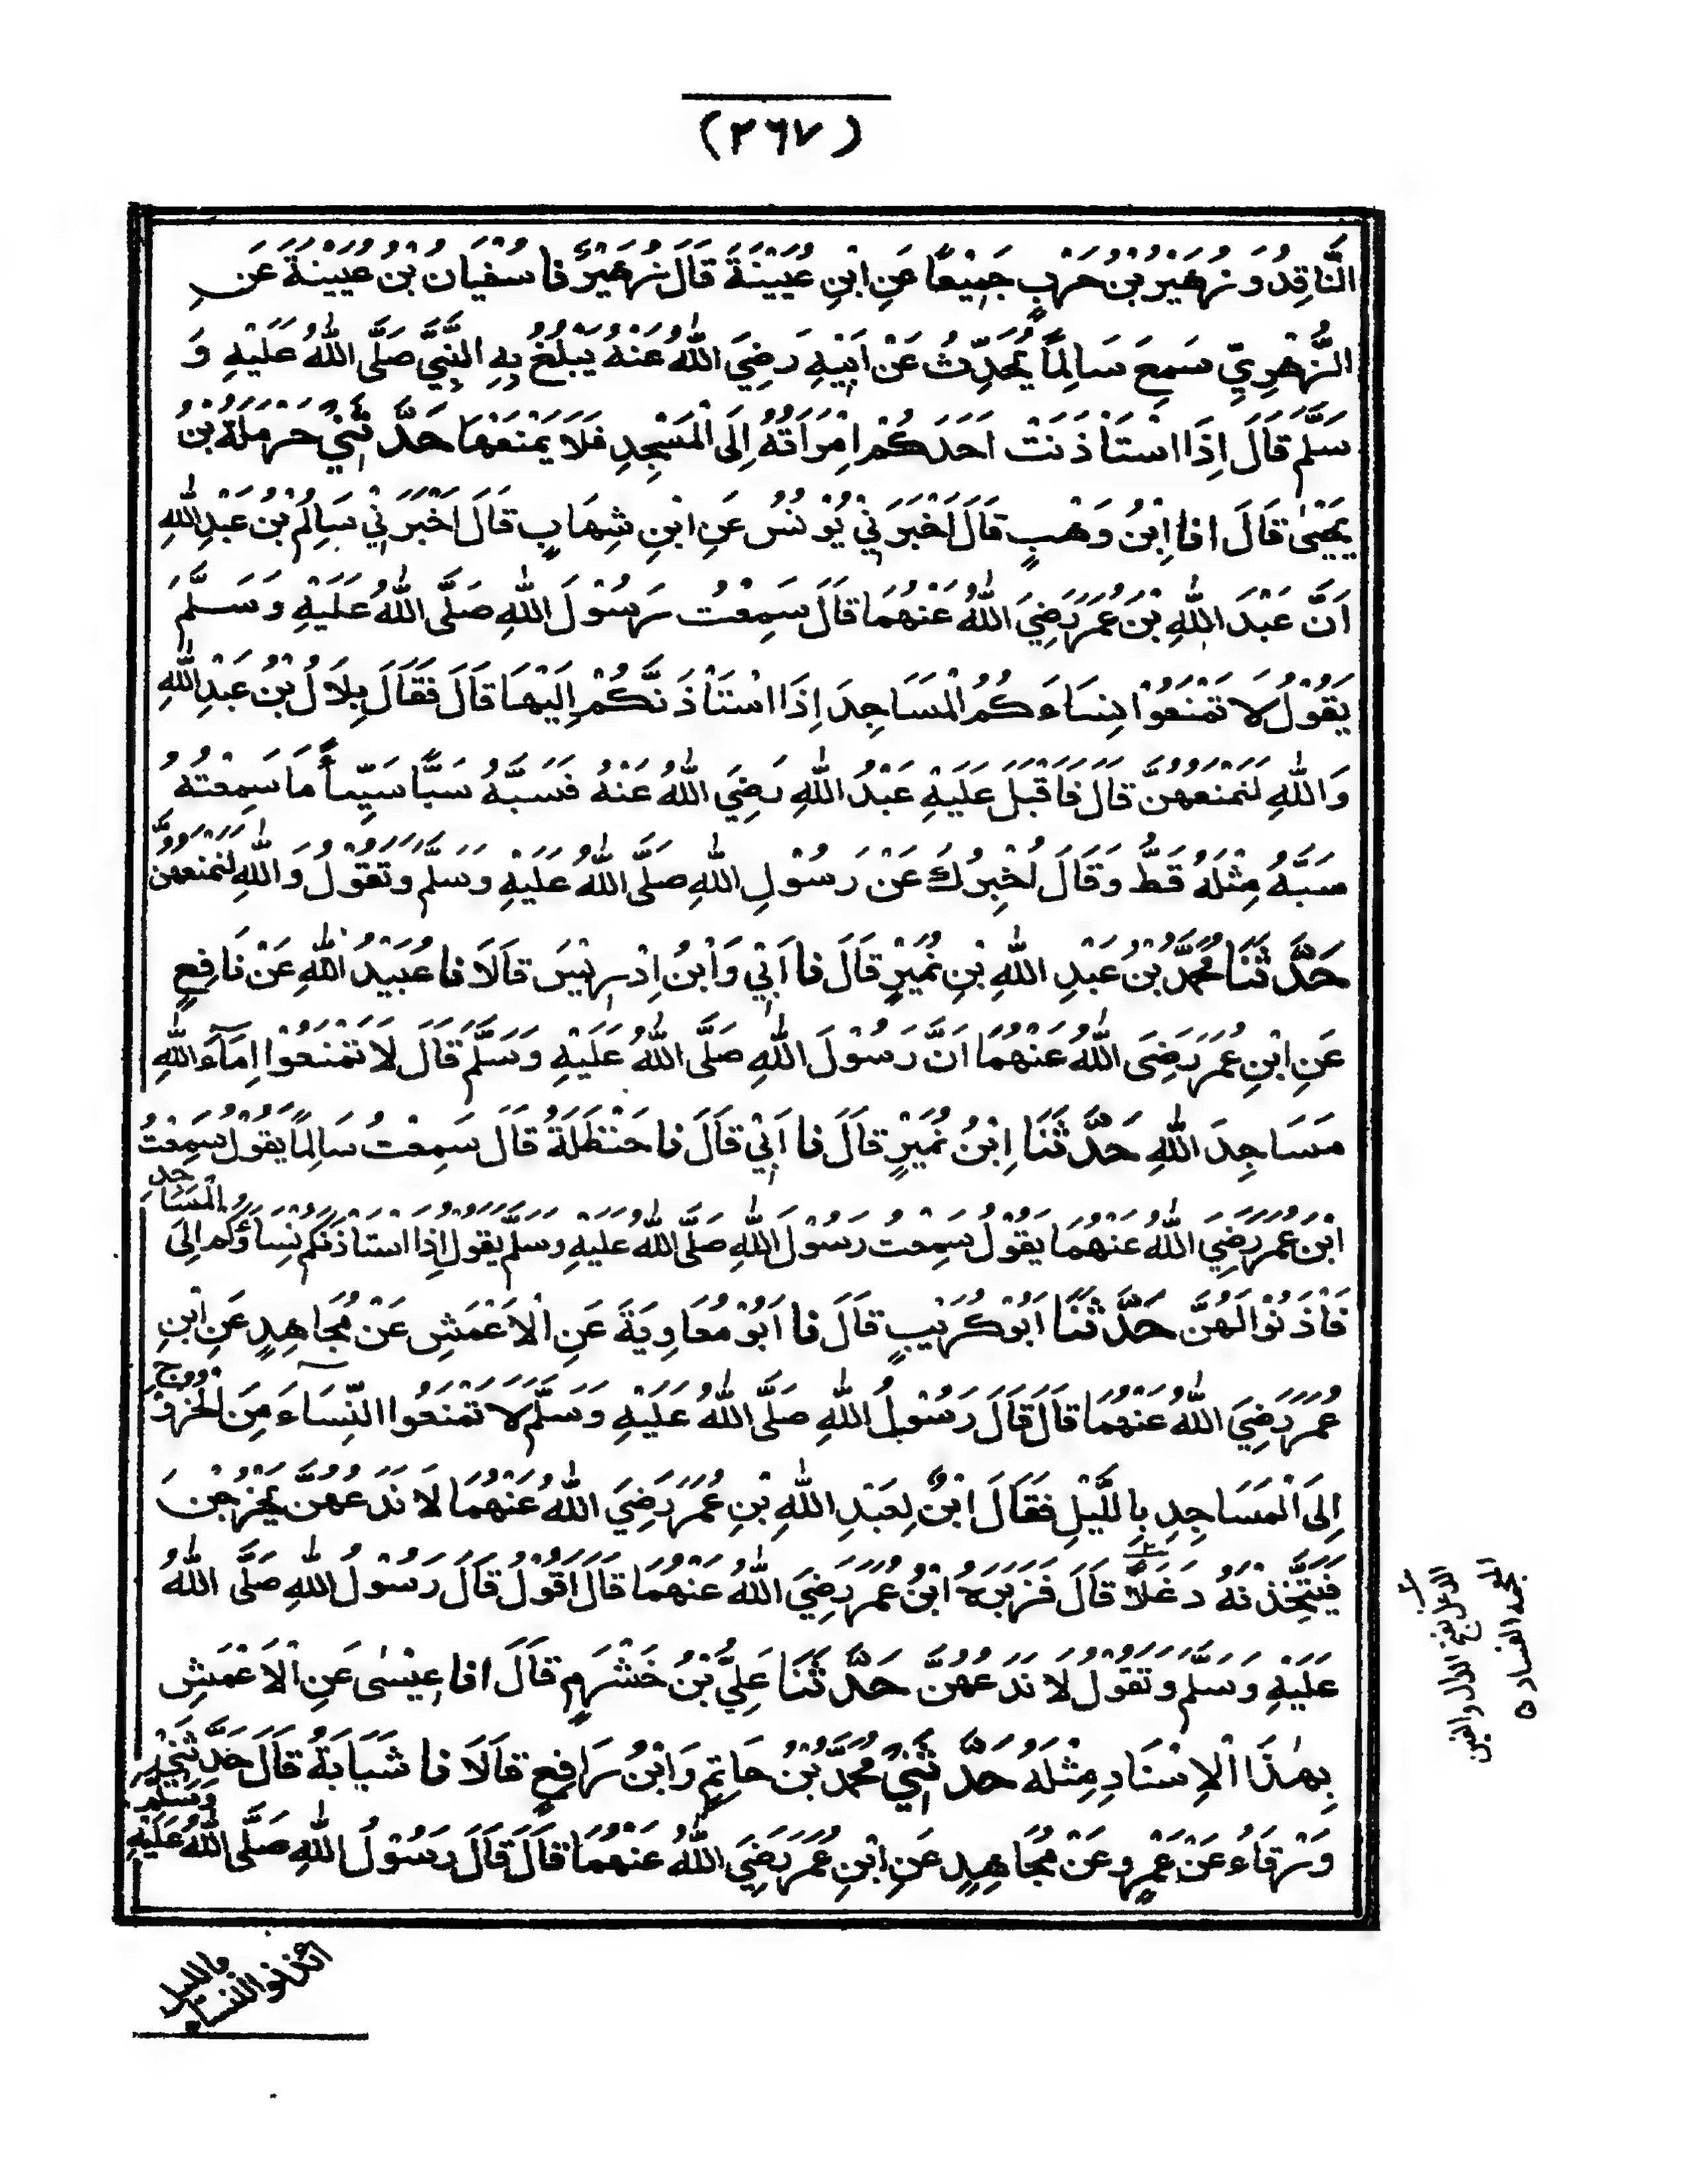 (٢٦٧)
النَّاقِدُ وَزُهَيْرُ بْنُ حَرْبٍ جَمِيْعًا عَنِ ابْنِ عُيَيْنَةَ قَالَ زُهَيْرٌ نا سُفْيَانُ بْنُ عُيَيْنَةَ عَنِ
الزُّهْرِيِّ سَمِعَ سَالِمًا يُحَدِّثُ عَنْ اَبِيْهِ رَضِيَ اللّٰهُ عَنْهُ يَبْلُغُ بِهِ النَّبِيَّ صَلَّى اللّٰهُ عَلَيْهِ وَ
سَلَّمَ قَالَ اِذَا اسْتَاْذَنَتْ اَحَدَكُمُ امْرَاَتُهُ اِلَى الْمَسْجِدِ فَلَا يَمْنَعْهَا حَدَّثَنِيْ حَرْمَلَةُ بْنُ
يَحْيٰى قَالَ انا اِبْنُ وَهْبٍ قَالَ اَخْبَرَنِيْ يُوْنُسُ عَنِ ابْنِ شِهَابٍ قَالَ اَخْبَرَنِيْ سَالِمُ بْنُ عَبْدِ اللّٰهِ
اَنَّ عَبْدَ اللّٰهِ بْنَ عُمَرَ رَضِيَ اللّٰهُ عَنْهُمَا قَالَ سَمِعْتُ رَسُوْلَ اللّٰهِ صَلَّى اللّٰهُ عَلَيْهِ وَسَلَّمَ
يَقُوْلُ لَا تَمْنَعُوْا نِسَاءَكُمُ الْمَسَاجِدَ اِذَا اسْتَاْذَنَّكُمْ اِلَيْهَا قَالَ فَقَالَ بِلَالُ بْنُ عَبْدِ اللّٰهِ
وَاللّٰهِ لَنَمْنَعُهُنَّ قَالَ فَاَقْبَلَ عَلَيْهِ عَبْدُ اللّٰهِ رَضِيَ اللّٰهُ عَنْهُ فَسَبَّهُ سَبًّا سَيِّئاً مَا سَمِعْتُهُ
سَبَّهُ مِثْلَهُ قَطُّ وَقَالَ اُخْبِرُكَ عَنْ رَسُوْلِ اللّٰهِ صَلَّى اللّٰهُ عَلَيْهِ وَسَلَّمَ وَتَقُوْلُ وَاللّٰهِ لَنَمْنَعُهُنَّ
حَدَّثَنَا مُحَمَّدُ بْنُ عَبْدِ اللّٰهِ بْنِ نُمَيْرٍ قَالَ نا اَبِيْ وَابْنُ اِدْرِيْسَ قَالَا نا عُبَيْدُ اللّٰهِ عَنْ نَافِعٍ
عَنِ ابْنِ عُمَرَ رَضِيَ اللّٰهُ عَنْهُمَا اَنَّ رَسُوْلَ اللّٰهِ صَلَّى اللّٰهُ عَلَيْهِ وَسَلَّمَ قَالَ لَا تَمْنَعُوْا اِمَآءَ اللّٰهِ
مَسَاجِدَ اللّٰهِ حَدَّثَنَا اِبْنُ نُمَيْرٍ قَالَ نا اَبِيْ قَالَ نا حَنْظَلَةُ قَالَ سَمِعْتُ سَالِمًا يَقُوْلُ سَمِعْتُ
ابْنَ عُمَرَ رَضِيَ اللّٰهُ عَنْهُمَا يَقُوْلُ سَمِعْتُ رَسُوْلَ اللّٰهِ صَلَّى اللّٰهُ عَلَيْهِ وَسَلَّمَ يَقُوْلُ اِذَا اسْتَاْذَنَكُمْ نِسَاؤُكُمْ اِلَى الْمَسَاجِدِ
فَاْذَنُوْا لَهُنَّ حَدَّثَنَا اَبُوْ كُرَيْبٍ قَالَ نا اَبُوْ مُعَاوِيَةَ عَنِ الْاَعْمَشِ عَنْ مُجَاهِدٍ عَنِ ابْنِ
عُمَرَ رَضِيَ اللّٰهُ عَنْهُمَا قَالَ قَالَ رَسُوْلُ اللّٰهِ صَلَّى اللّٰهُ عَلَيْهِ وَسَلَّمَ لَا تَمْنَعُوا النِّسَاءَ مِنَ الْخُرُوْجِ
اِلَى الْمَسَاجِدِ بِاللَّيْلِ فَقَالَ ابْنٌ لِعَبْدِ اللّٰهِ بْنِ عُمَرَ رَضِيَ اللّٰهُ عَنْهُمَا لَا نَدَعُهُنَّ يَخْرُجْنَ
فَيَتَّخِذْنَهُ دَغَلًا قَالَ فَزَبَرَهُ ابْنُ عُمَرَ رَضِيَ اللّٰهُ عَنْهُمَا قَالَ اَقُوْلُ قَالَ رَسُوْلُ اللّٰهِ صَلَّى اللّٰهُ
عَلَيْهِ وَسَلَّمَ وَتَقُوْلُ لَا نَدَعُهُنَّ حَدَّثَنَا عَلِيُّ بْنُ خَشْرَمٍ قَالَ انا عِيْسٰى عَنِ الْاَعْمَشِ
بِهٰذَا الْاِسْنَادِ مِثْلَهُ حَدَّثَنِيْ مُحَمَّدُ بْنُ حَاتِمٍ وَابْنُ رَافِعٍ قَالَا نا شَبَابَةُ قَالَ حَدَّثَنِيْ
وَرْقَاءُ عَنْ عَمْرٍو عَنْ مُجَاهِدٍ عَنِ ابْنِ عُمَرَ رَضِيَ اللّٰهُ عَنْهُمَا قَالَ قَالَ رَسُوْلُ اللّٰهِ صَلَّى اللّٰهُ عَلَيْهِ وَسَلَّمَ
الدغل بفتح الدال والغين
المعجمه الفساد
ائذنوا النساء
بالليل